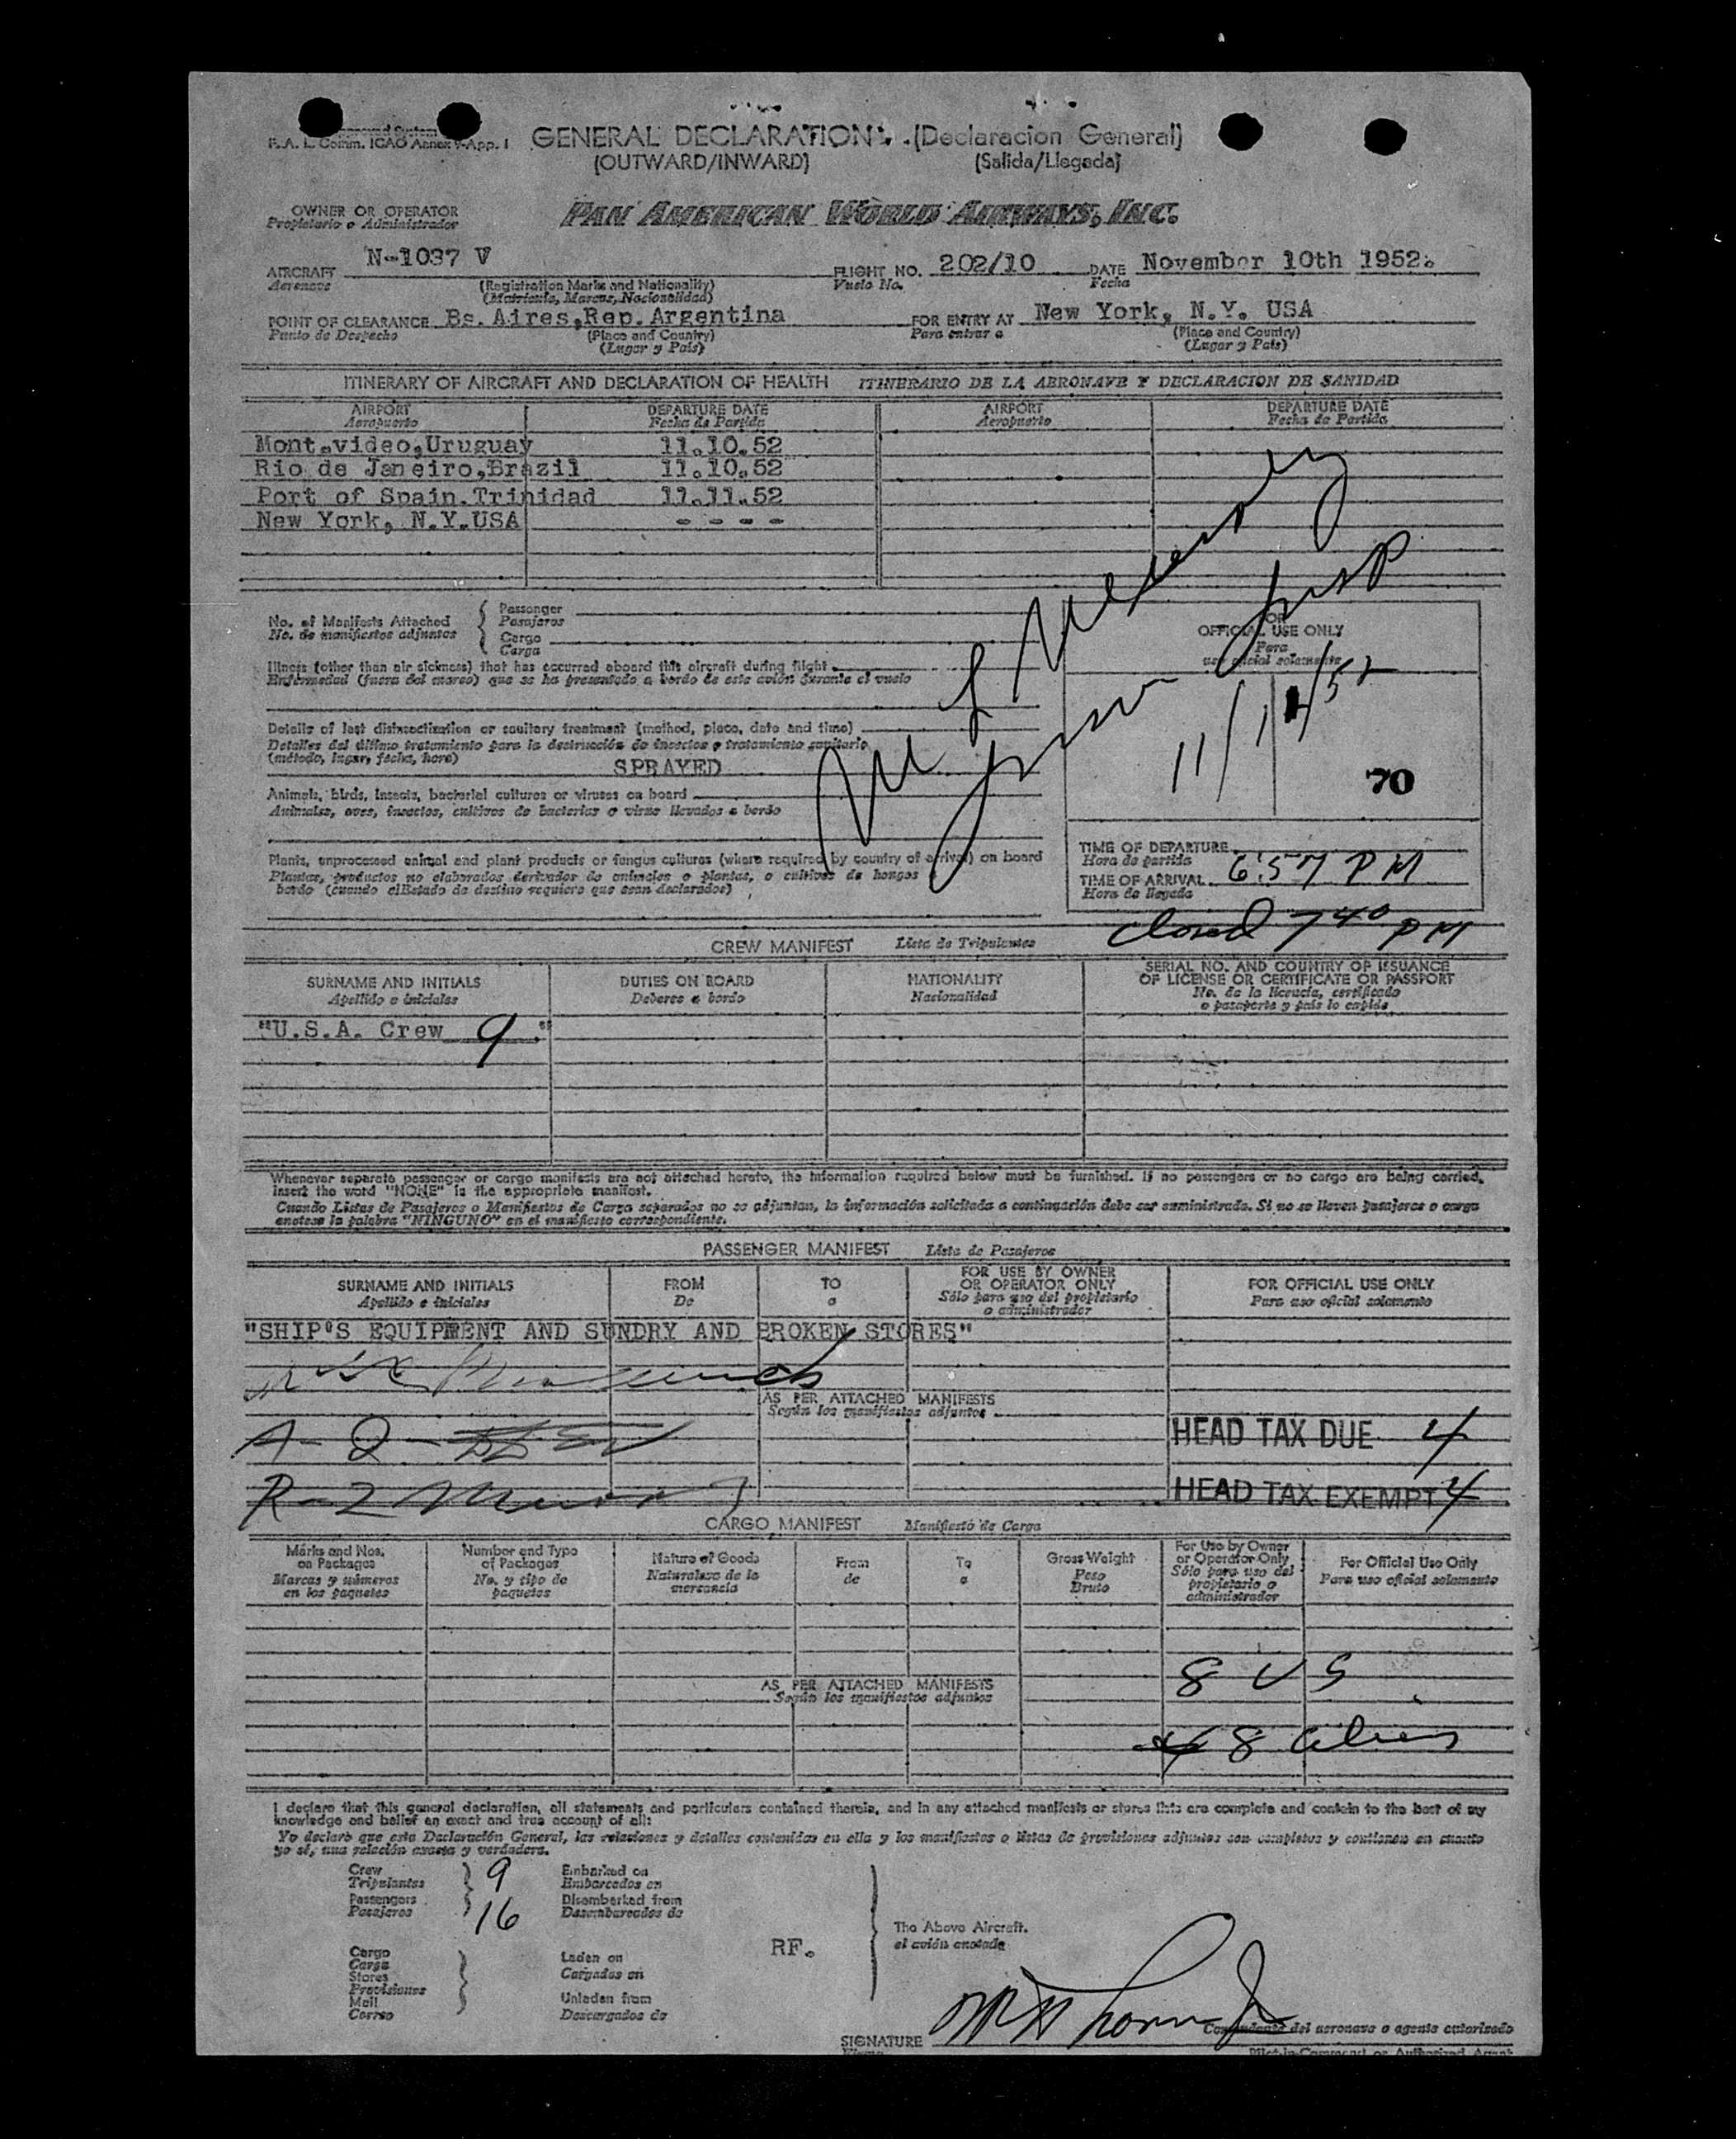 F.A.L. Comm. ICAO Annex 9-App. 1
GENERAL DECLARATION (Declaracion General)
(OUTWARD/INWARD) (Salida/Llegada)
OWNER OR OPERATOR
Propietario o Administrador
PAN AMERICAN WORLD AIRWAYS, INC.
AIRCRAFT N-1037 V FLIGHT NO. 202/10 DATE November 10th 1952.
Aeronave (Registration Marks and Nationality) Vuelo No. Fecha
(Matricula, Marcas, Nacionalidad)
POINT OF CLEARANCE Bs. Aires,Rep. Argentina FOR ENTRY AT New York, N.Y. USA
Punto de Despacho (Place and Country) Para entrar a (Place and Country)
(Lugar y Pais) (Lugar y Pais)
ITINERARY OF AIRCRAFT AND DECLARATION OF HEALTH ITINERARIO DE LA AERONAVE Y DECLARACION DE SANIDAD
AIRPORT DEPARTURE DATE AIRPORT DEPARTURE DATE
Aeropuerto Fecha de Partida Aeropuerto Fecha de Partida
Mont.video,Uruguay 11.10.52
Rio de Janeiro,Brazil 11.10.52
Port of Spain.Trinidad 11.11.52
New York, N.Y.USA - - - -
No. of Manifests Attached Passenger
No. de manifiestos adjuntos Pasajeros
Cargo
Carga
FOR
OFFICIAL USE ONLY
Para
uso oficial solamente
Illness (other than air sickness) that has occurred aboard this aircraft during flight
Enfermedad (fuera del mareo) que se ha presentado a bordo de este avión durante el vuelo
11/11/52
Details of last disinsectization or sanitary treatment (method, place, date and time)
Detalles del último tratamiento para la destrucción de insectos o tratamiento sanitario
(método, lugar, fecha, hora)
SPRAYED
70
Animals, birds, insects, bacterial cultures or viruses on board
Animales, aves, insectos, cultivos de bacterias o virus llevados a bordo
Plants, unprocessed animal and plant products or fungus cultures (where required by country of arrival) on board
Plantas, productos no elaborados derivados de animales o plantas, o cultivos de hongos a
bordo (cuando el Estado de destino requiere que sean declarados)
TIME OF DEPARTURE
Hora de partida
TIME OF ARRIVAL 6:57 PM
Hora de llegada
closed 7 40 PM
CREW MANIFEST Lista de Tripulantes
SURNAME AND INITIALS DUTIES ON BOARD NATIONALITY SERIAL NO. AND COUNTRY OF ISSUANCE
OF LICENSE OR CERTIFICATE OR PASSPORT
Apellido e iniciales Deberes a bordo Nacionalidad No. de la licencia, certificado
o pasaporte y pais lo expide
"U.S.A. Crew 9."
Whenever separate passenger or cargo manifests are not attached hereto, the information required below must be furnished. If no passengers or no cargo are being carried,
insert the word "NONE" in the appropriate manifest.
Cuando Listas de Pasajeros o Manifiestos de Carga separados no se adjuntan, la información solicitada a continuación debe ser suministrada. Si no se llevan pasajeros o carga
anotese la palabra "NINGUNO" en el manifiesto correspondiente.
PASSENGER MANIFEST Lista de Pasajeros
SURNAME AND INITIALS FROM TO FOR USE BY OWNER
OR OPERATOR ONLY FOR OFFICIAL USE ONLY
Apellido e iniciales De a Sólo para uso del propietario
o administrador Para uso oficial solamente
"SHIP'S EQUIPMENT AND SUNDRY AND BROKEN STORES"
AS PER ATTACHED MANIFESTS
Según los manifiestos adjuntos
HEAD TAX DUE 4
HEAD TAX EXEMPT 4
CARGO MANIFEST Manifiesto de Carga
Marks and Nos.
on Packages
Marcas y números
en los paquetes
Number and Type
of Packages
No. y tipo de
paquetes
Nature of Goods
Naturaleza de la
mercancia
From
de
To
a
Gross Weight
Peso
Bruto
For Use by Owner
or Operator Only
Sólo para uso del
propietario o
administrador
For Official Use Only
Para uso oficial solamente
8 US
AS PER ATTACHED MANIFESTS
Según los manifiestos adjuntos
8 aliens
I declare that this general declaration, all statements and particulars contained therein, and in any attached manifests or stores lists are complete and contain to the best of my
knowledge and belief an exact and true account of all:
Yo declaro que esta Declaración General, las relaciones y detalles contenidos en ella y los manifiestos o listas de provisiones adjuntos son completos y contienen en cuanto
yo sé, una relación exacta y verdadera.
Crew 9 Embarked on
Tripulantes Embarcados en
Passengers 16 Disembarked from
Pasajeros Desembarcados de
The Above Aircraft.
el avión anotado
RF.
Cargo
Carga
Stores
Provisiones
Mail
Correo
Laden on
Cargados en
Unladen from
Descargados de
SIGNATURE
Firma
Comandante del aeronave o agente autorizado
Pilot-in-Command or Authorized Agent